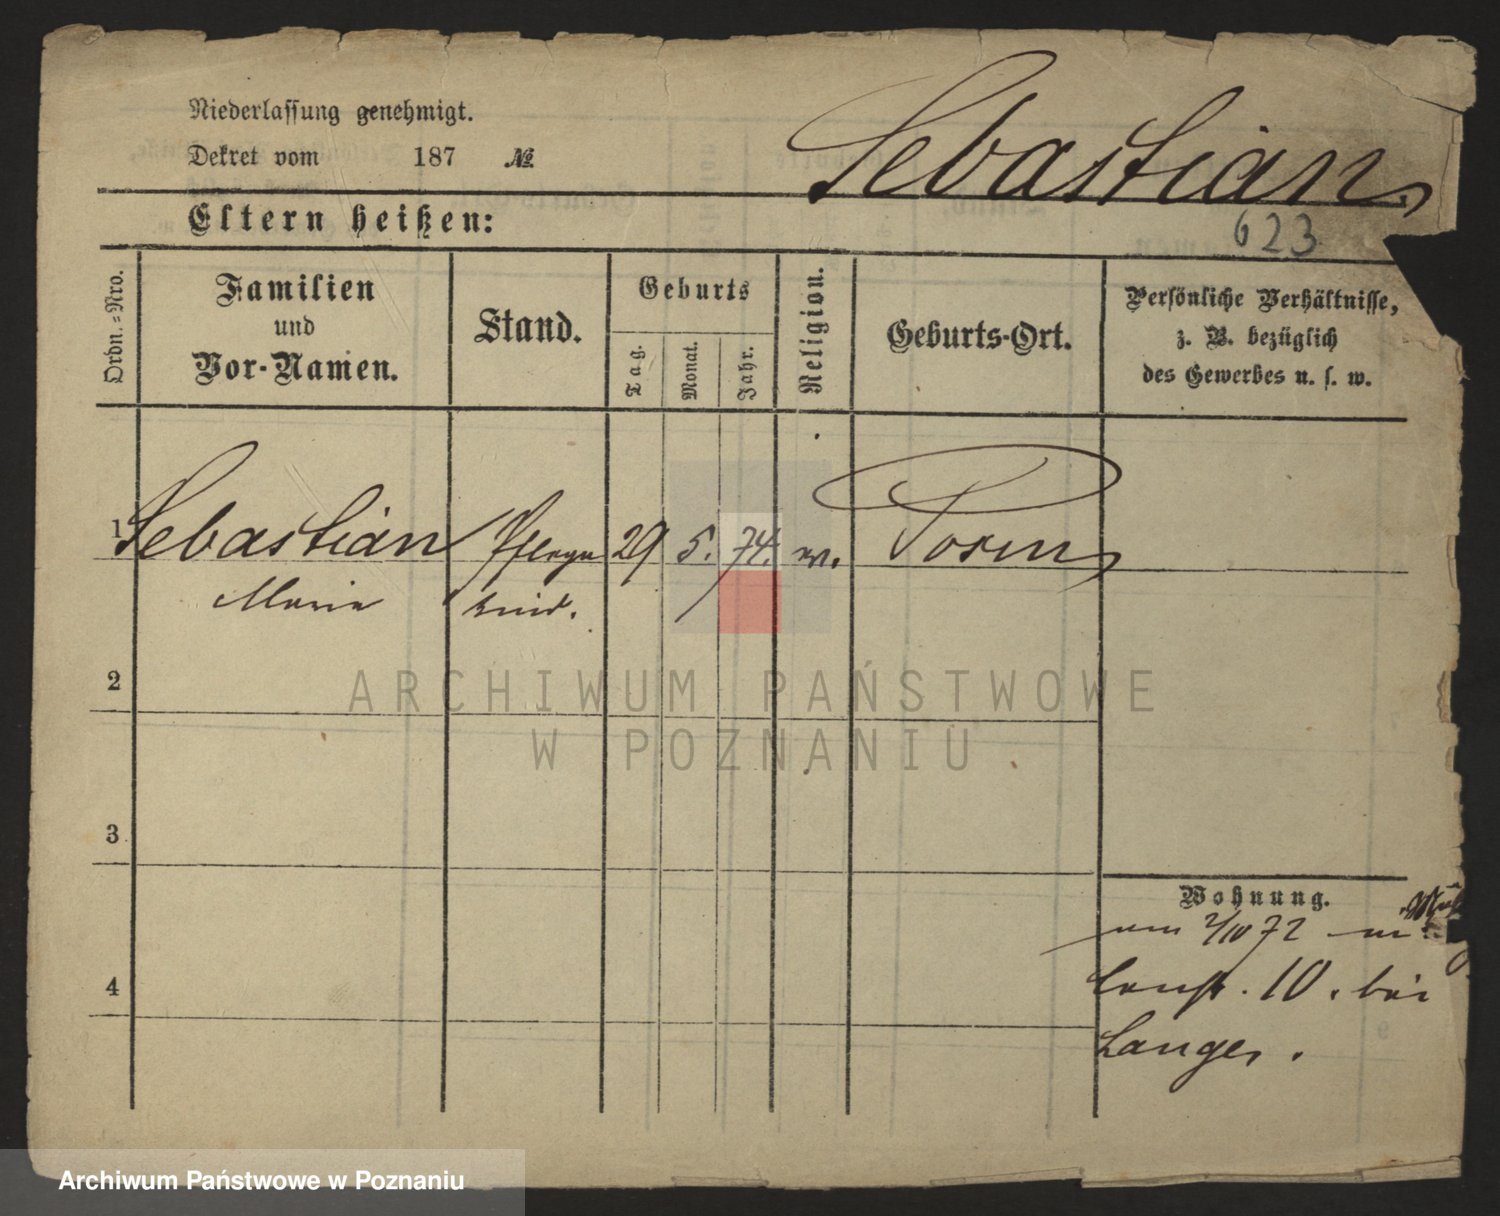 Niederlassung genehmigt.
Dekret vom 187 №
Sebastian
623
Eltern heißen:
Ordn.-Nro.
Familien
und
Vor-Namen.
Stand.
Geburts
Tag.
Monat.
Jahr.
Religion.
Geburts-Ort.
Persönliche Verhältnisse,
z. B. bezüglich
des Gewerbes u. s. w.
1 Sebastian Pflege 29 5. 74. Posen
Marie kind.
2
3
4
ARCHIWUM PAŃSTWOWE
W POZNANIU
Wohnung.
72
10. bei
Lange.
Archiwum Państwowe w Poznaniu